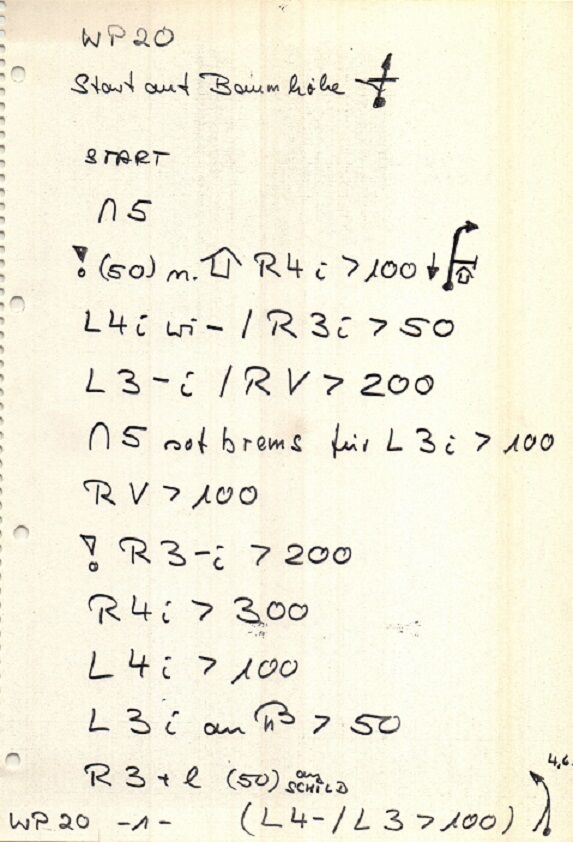 WP20
Start auf Baumhöhe
START
∩5
! (50) n. R4i > 100 ↓
L4i wi - / R3i > 50
L3-i / RV > 200
∩5 sof brems für L3i > 100
RV > 100
! R3-i > 200
R4i > 300
L4i > 100
L3i an > 50
R3+l (50) am SCHILD
4,6
WP20 -1- (L4-/L3 > 100)